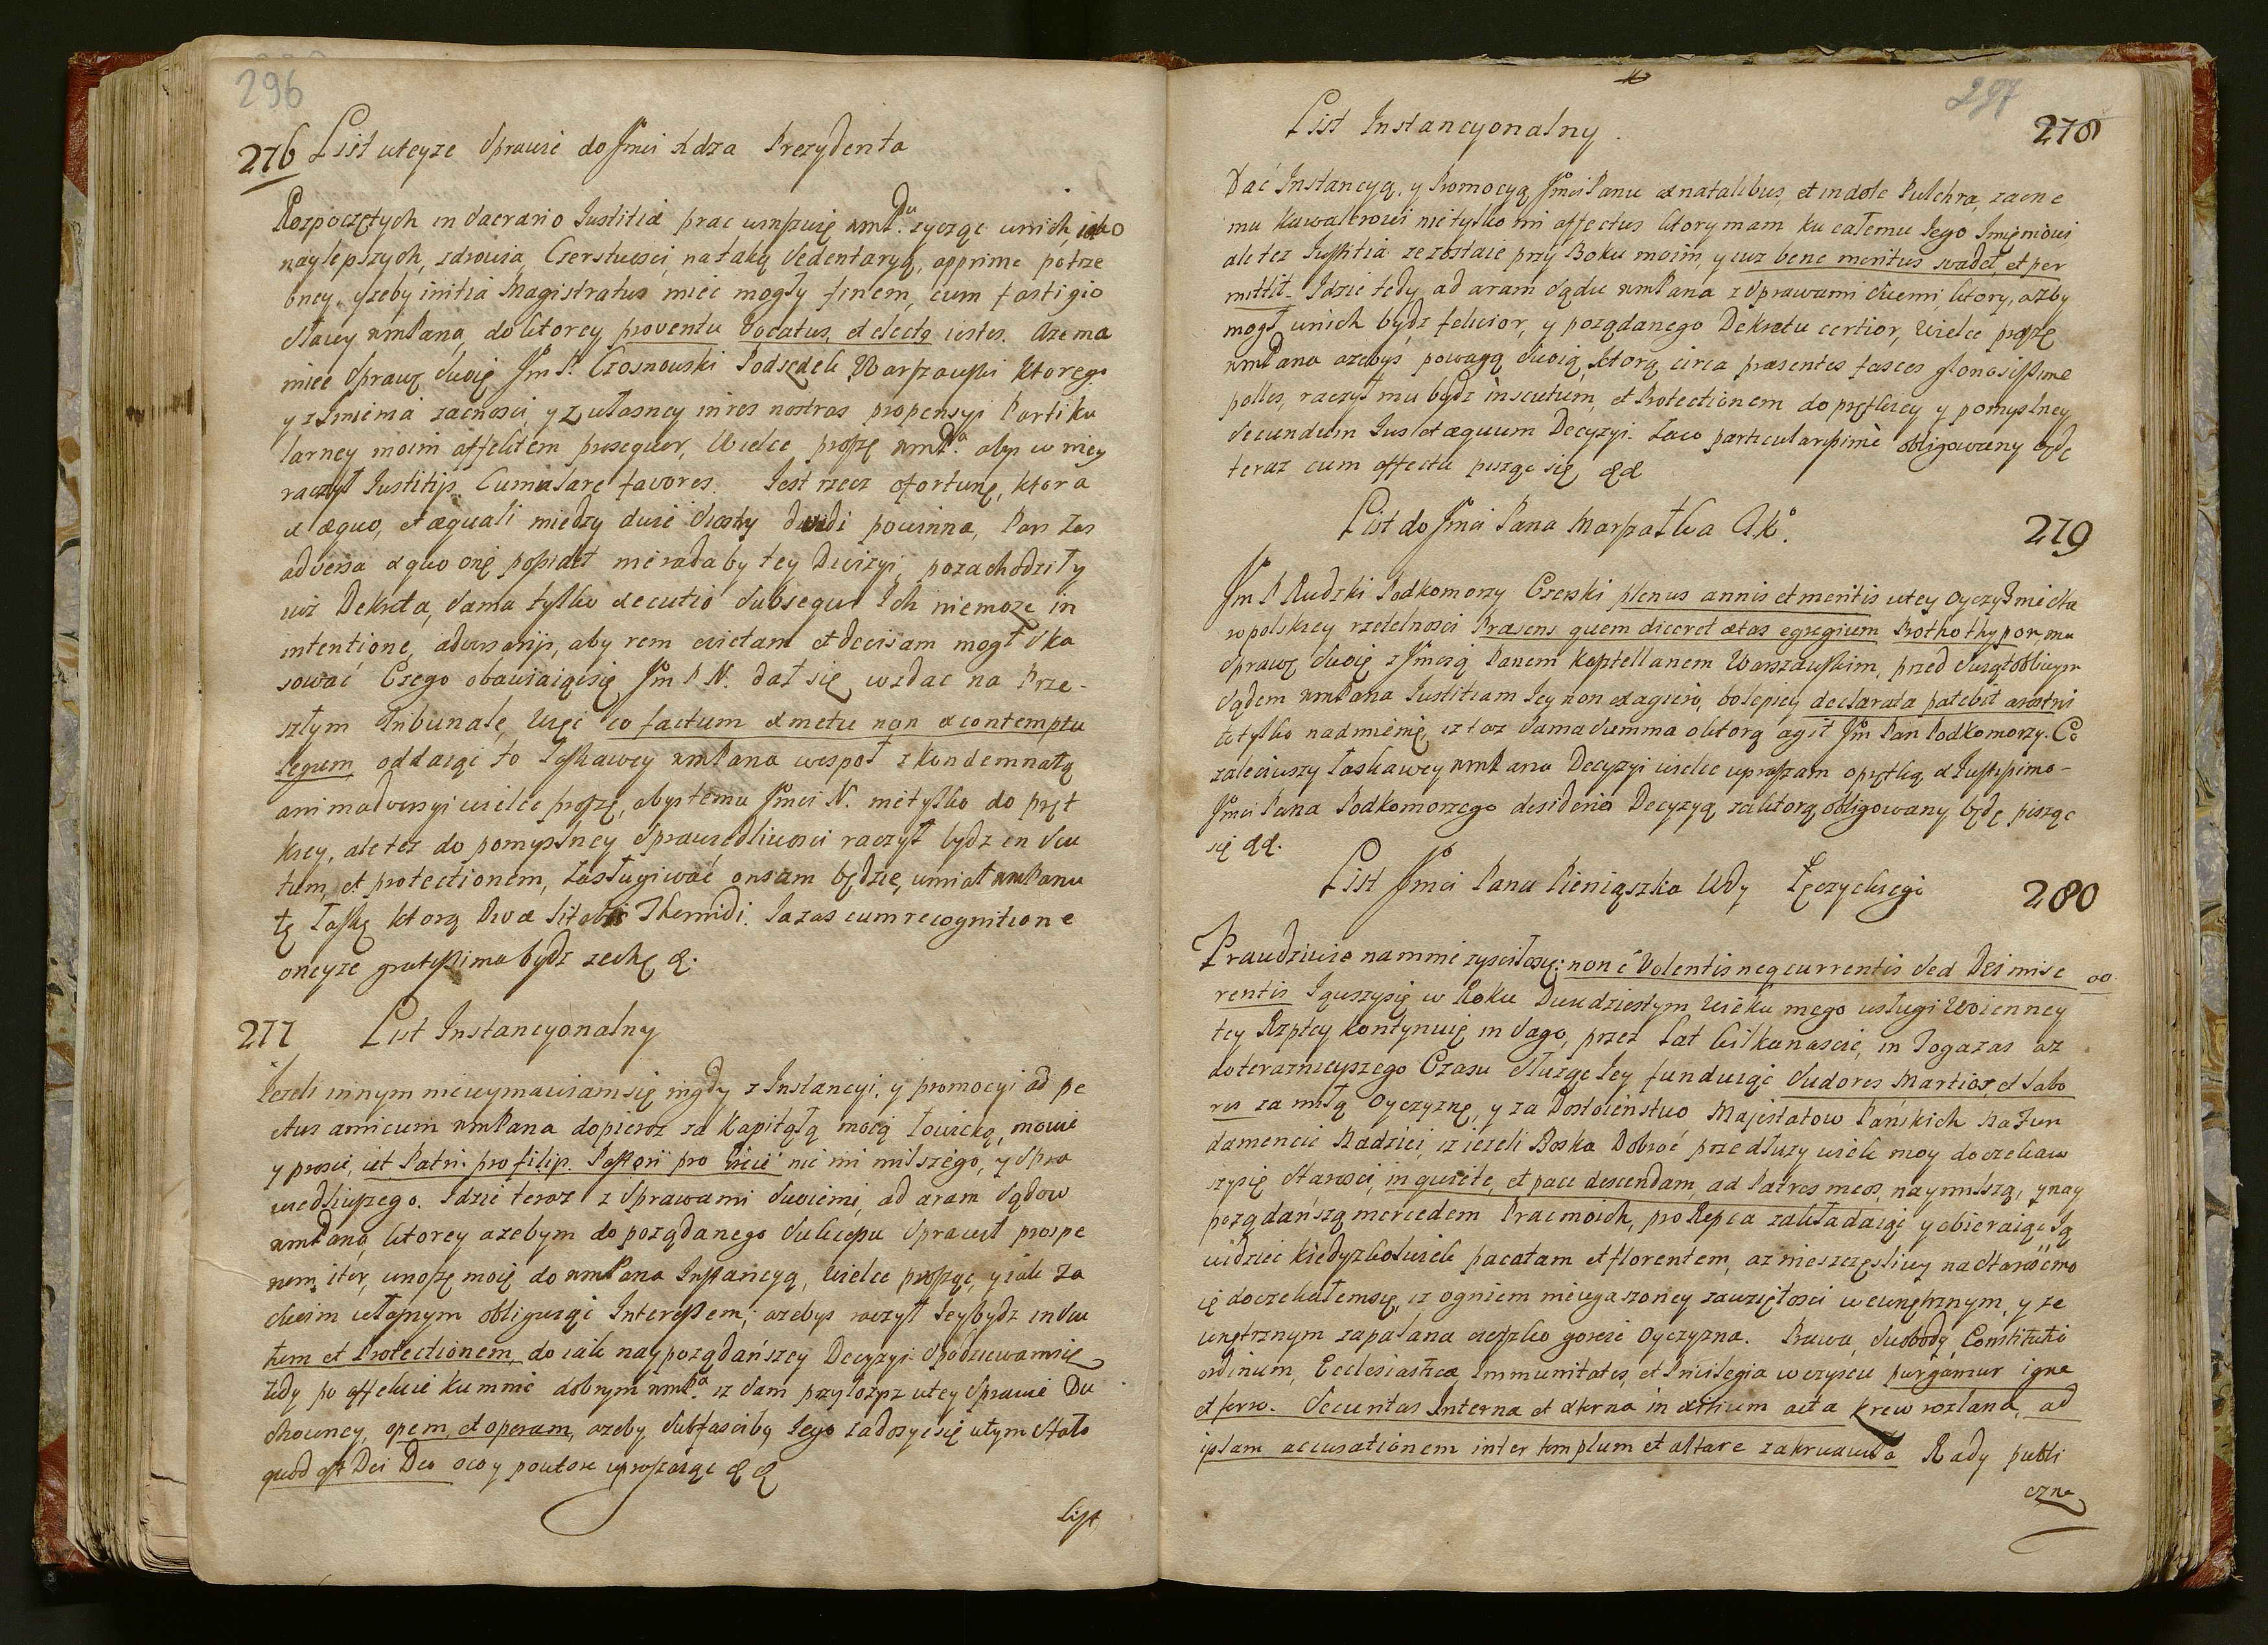 296
276 List wteyze Sprawie do Jmci Xdza Prezydenta
Rozpoczętych in Sacrario Justitiæ prac winszuię wmPdu. zycząc wnich, iako
naylepszych, zdrowia, Czerstwosci, na taką Sedentaryą, apprime potrze
bney, yzeby initia Magistratus miec mogły finem, cum fastigio
sławy wmPana, do ktorey proventu Vocatus, et electo iestes. Aze ma
miec Sprawę Swoię Jm P. Czosnowski Podsędek Warszawski ktorego
y z Jmienia zacnosci, y z własney in res nostras propensyi Partiku
larney moim affektem prosequor, Wielce proszę wmPa. abys w niey
raczył Justitijs Cumulare favores. Jest rzecz o fortunę, ktora
ex æquo, et æquali między dwie Siostry dividi powinna, Pars zas
adversa ex quo onę possidet nie rada by tey Divizyi, pozachodziły
iuż Dekreta, sama tylko executio Subsequi Ich niemoze in
intentione, adversarijs, aby rem evictam et decisam mogł ska
sować Czego obawiaiąc się Jm P N. dał się wzdac na Prze-
szłym Tribunale, Więc eo factum ex metu non ex contemptu
Legum oddaiąc to Łaskawey wmPana wespoł z kondemnatą
animadversyi wielce proszę, abys temu Jmci N. nie tylko do pręt
kiey, ale tez do pomyslney Sprawiedliwosci raczył bydz in Scu
tum, et protectionem, zasługiwać on sam będzie, umiał wmPanu
tę łaskę ktorą Divæ litabis Themidi. Ja zas cum recognitione
oneyze gratissima bydz zechę &.
277 List Instancyonalny
Jezeli innym niewymawiam się nigdy z Instancyi, y promocyi ad pe
ctus amicum wmPana dopieroz za Kapitułą moią Łowicką, mowie
y prosic, ut Patri pro filijs, Pastori pro nic mi milszego, y Spra
wiedliwszego. Jdzie teraz z Sprawami Swoiemi, ad aram Sądow
wmPana, ktorey azebym do pożądanego Sukcessu Sprawił prospe
rum iter, wnoszę moię do wmPana Instancyą, wielce prosząc, y iak za
swoim własnym obliguiąc Interessem; azebys raczył Jey bydz in Scu
tum et Protectionem, do iak naypożądańszey Decyzyi. Spodziewam się
tedy po affekcie ku mnie dobrym wmPa. iz sam przyłozysz wtey Sprawie Du
chowney, opem, et operam, azeby Sub fascibus Jego zadosyc się wtym stało
quod est Dei Deo oco y powtore upraszaiąc &&
List
297
List Instancyonalny. 278
Dać Instancyą, y Promocyą Jmci Panu ex natalibus, et indole Pulchra, zacne
mu kawalerowi nie tylko mi affectus ktory mam ku całemu Jego Jmieniowi
ale tez Justitia ze zostaie przy Boku moim, y iuz bene meritus suadet, et per
mittit. Jdzie tedy ad aram Sądu wmPana z Sprawami Swemi ktory, azby
mogł wnich bydz felicior, y poządanego Dekretu certior, Wielce proszę
wmPana azebys powagą swoią, ktorą circa præsentes fasces gloriosissime
polles, raczył mu bydz in scutum, et Protectionem do prętkiey y pomyslney,
Secundum Jus et æquum Decyzyi. Zaco particularissimè obligowany będę
teraz cum affectu pisząc się &&
List do Jmci Pana Marszałka T.K. 279
Jm P Rudzki Podkomorzy Czerski plenus annis et meritis wtey Oyczyznie sta
ropolskiey rzetelnosci Præsens quem diceret ætas egregium Prothothypon, ma
Sprawę Swoię z Jmcią Panem Kasztellanem Warszawskim, przed Swiątobliwym
Sądem wmPana Justitiam Jey non exagiero, bo lepiey declarata patebit aractri
to tylko nadmienię, iz taz sama Summa o ktorą agit Jm Pan Podkomorzy. Co
zaleciwszy łaskawey wmPana Decyzyi wielce upraszam o prętką, ex Justissimo
Jmci Pana Podkomorzego desiderio Decyzyą za ktorą obligowany będę pisząc
się &&.
List Jmci Pana Pieniąszka Wdy Łęczyckiego 280
Prawdziwie na mnie zysciłosię: non é Volentis neq currentis sed Dei mise
rentis Iguszysię w Roku Dwudziestym, Wieku mego usługi Woienney
tey Rzptey kontynuię in Sago, przez Lat kilkanascie, in Toga zas az
do teraznieyszego Czasu służąc Jey funduiąc Sudores Martios, et Labo
res za miłą Oyczyznę, y za Dostoienstwo Majestatow Pańskich na Fun
damencie Nadziei, iz iezeli Boska Dobroć przedłuzy wiek moy doczekaw
szysię starosci, in quiete, et pace descendam, ad Patres meos, naymilszą, y nay
pozadańszą mercedem Prac moich, pro Repca zakładaiąc y obieraiąc Ją
widziec kiedyzkolwiek pacatam et florentem, az nieszczęsliwy na starość mo
ię doczekałemsię, iz ogniem nieugaszoney zawziętosci wewnętrznym, y ze
wnętrznym zapalana cięszko goreie Oyczyzna. Prawa, Swobody, Constitutio
ordinum, Ecclesiasticæ Immunitates, et Privilegia w czyscu purgamur igne
et ferro. Securitas Interna et externa in exitium acta krew rozlana, ad
ipsam accusationem inter templum et altare zakrwawiła Rady publi
czne